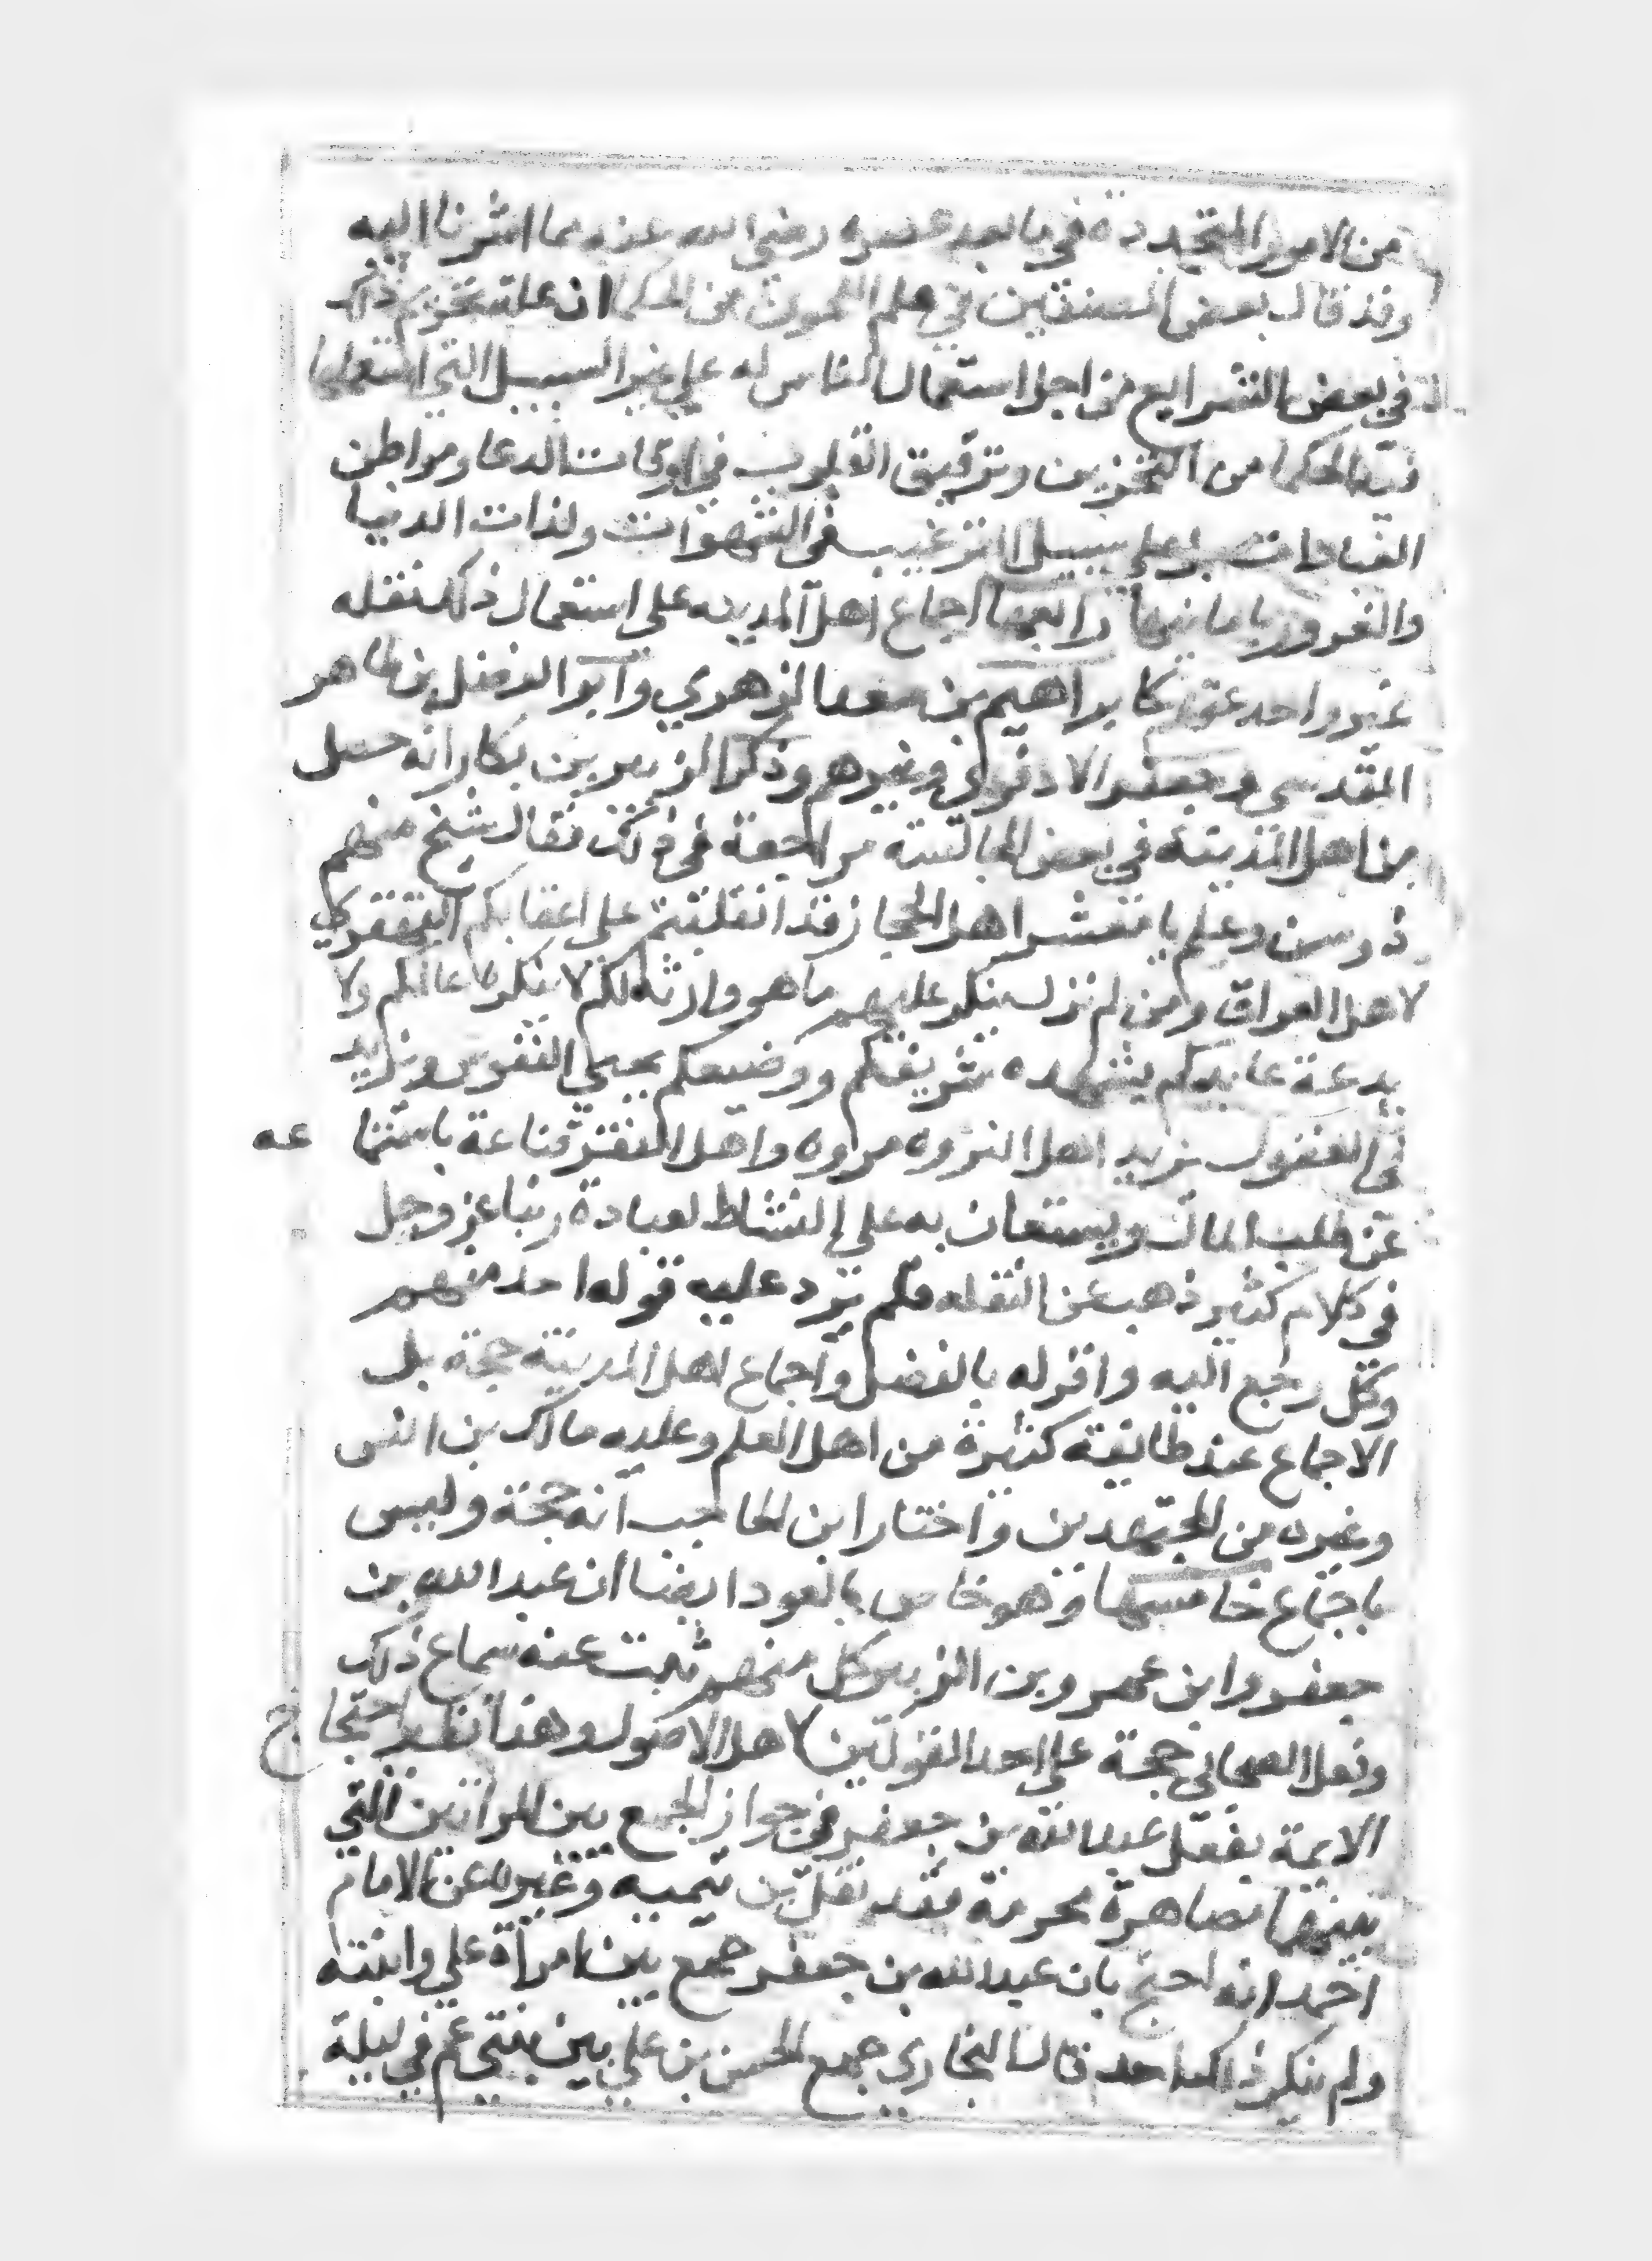 من الامور المتجددة في ما بعد عصره رضي الله عنه مما اشرنا اليه
وقد قال بعض المصنفين في علم اللحون من الحكما ان علة تحريم ذلك
في بعض الشرايع من اجل استعمال الناس له علي غير السبيل التي استعملها
الحكما من التحزين وترقيق القلوب في اوقات الدعا ومواطن
العبادات بل علي سبيل الترغيب في الشهوات ولذات الدنيا
والغرور بامانيها رابعها اجماع اهل المدينه على استعمال ذلك نقله
غير واحد عنهم كابراهيم بن سعد الزهري وابو الفضل بن طاهر
المقدسي وجعفر الادفوي وغيرهم وذكر الزبير بن بكار انه حصل
من اهل المدينة في بعض المجالسة مراجعة في ذلك فقال شيخ منهم
ذو سن وعلم يا معشر اهل الحجاز قد انقلبتم على اعقابكم القهقري
لاهل العراق ومن لم نزل ننكر عليهم ما هو وارثه لكم لا ينكره عالمكم ولا
يدعة عابدكم يشهده شريفكم ووضيعكم يحيي النفوس ويزيد
في العقول يزيد اهل الثروه مروه واهل الفقر قناعة باستغنا عه
عن طلب المال ويستعان به علي النشاط لعبادة ربنا عز وجل
في كلام كثير ذهب عن الثقله فلم يرد عليه قوله احد منهم
وكل رجع اليه واقر له بالفضل واجماع اهل المدينة حجة بل
الاجماع عند طايفة كثيرة من اهل العلم وعليه مالك بن انس
وغيره من المجتهدين واختار ابن الحاجب انه حجة وليس
باجماع خامسها وهو خاص بالعود ايضا ان عبد الله بن
جعفر وابن عمر وبن الزبير كل منهم ثبت عنه سماع ذلك
وفعل الصحابي حجة على احد القولين لاهل الاصول وهذا نظير احتجاج
الايمة بفعل عبد الله بن جعفر في جواز الجمع بين المراتين التي
بينهما مصاهرة محرمة فقد نقل بن تيميه وغيره عن الامام
احمد انه احتج بان عبد الله بن جعفر جمع بين امراة علي وابنته
ولم ينكر ذلك احد قال البخاري جمع الحسن بن علي بين بنتي عم في ليلة